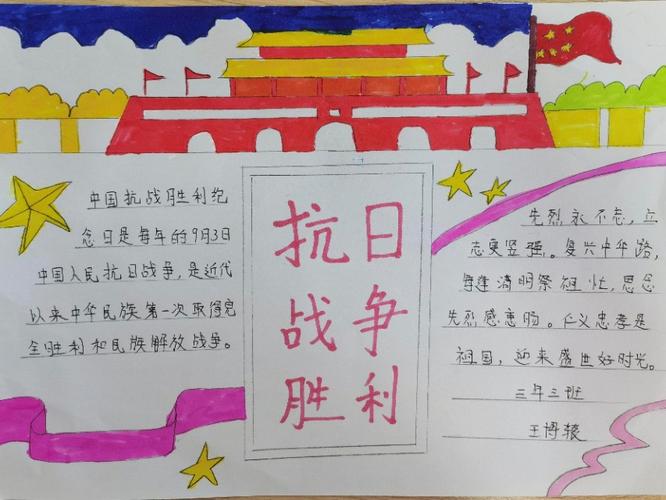 中国抗战胜利纪
念日是每年的9月3日
中国人民抗日战争,是近代
以来中华民族第一次取得完
全胜利和民族解放战争。
抗日
战争
胜利
先烈永不忘,立
志更坚强。复兴中华路,
每逢清明祭祖忙,思念
先烈感恵肠。仁义忠孝是
祖国,迎来盛世好时光。
三年三班
王博